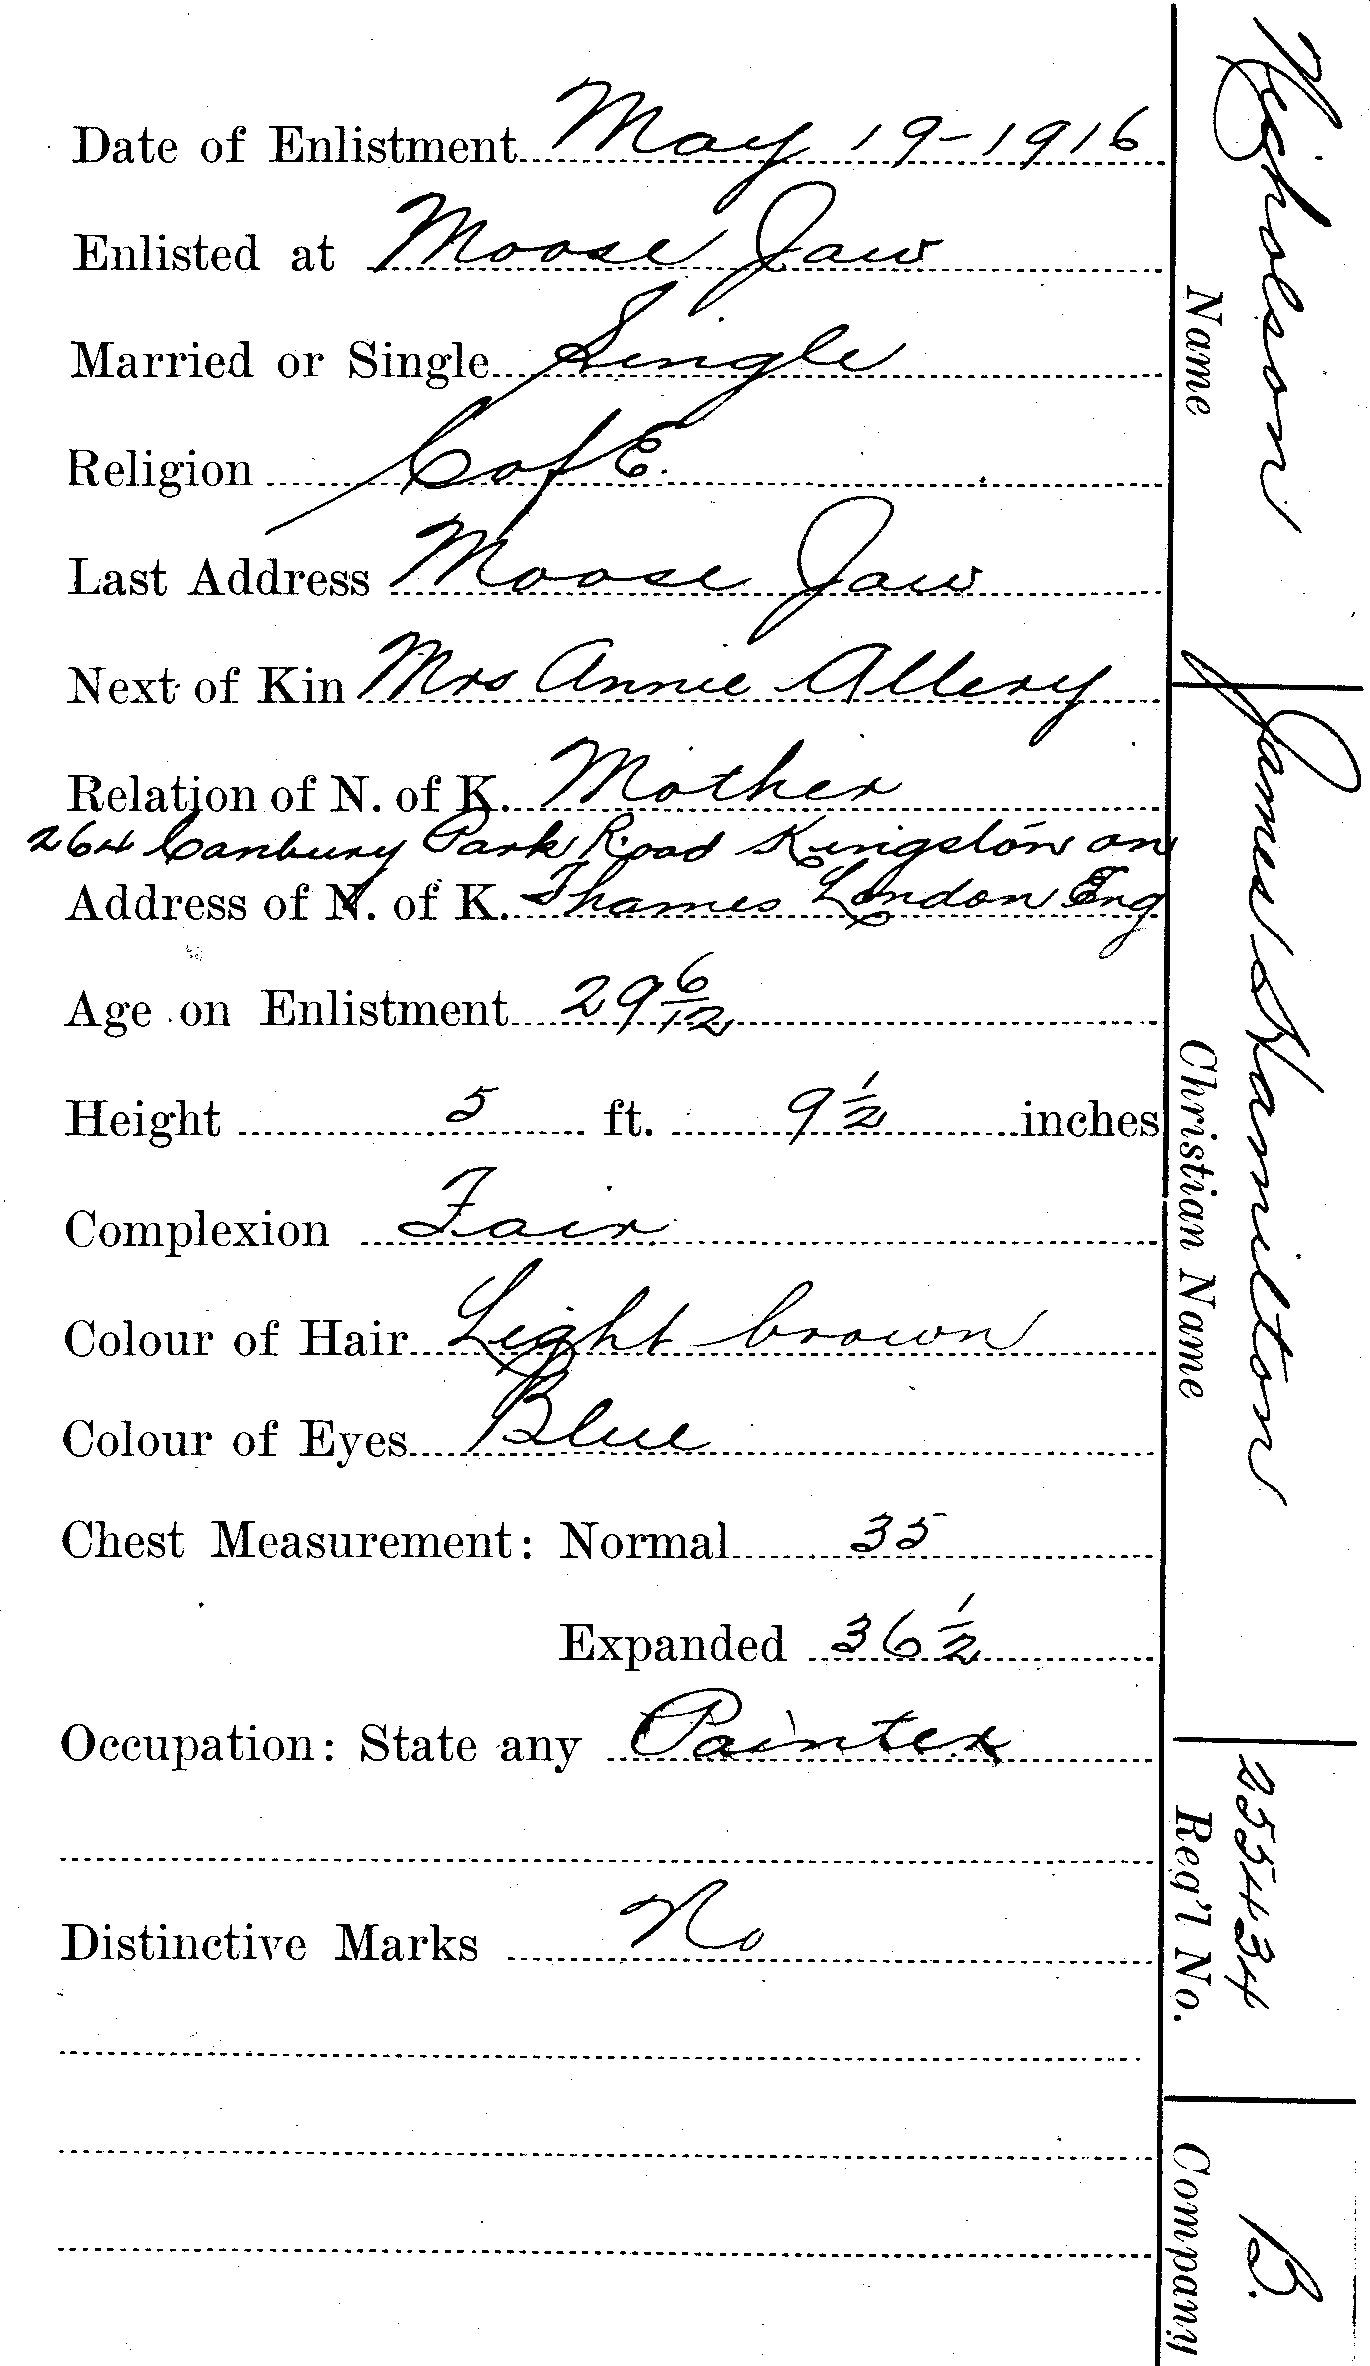 Date of Enlistment May 19-1916
Enlisted at Moose Jaw
Married or Single Single
Religion C of E.
Last Address Moose Jaw
Next of Kin Mrs Annie Allery
Relation of N. of K. Mother
264 Canbury Park Road Kingston on
Address of N. of K. Thames London Eng
Age on Enlistment 29 6/12
Height 5 ft. 9 1/2 inches
Complexion Fair
Colour of Hair Light brown
Colour of Eyes Blue
Chest Measurement: Normal 35
Expanded 36 1/2
Occupation: State any Painter
Distinctive Marks No
Nicholson James Hamilton 255434 B.
Name Christian Name Reg'l No. Company